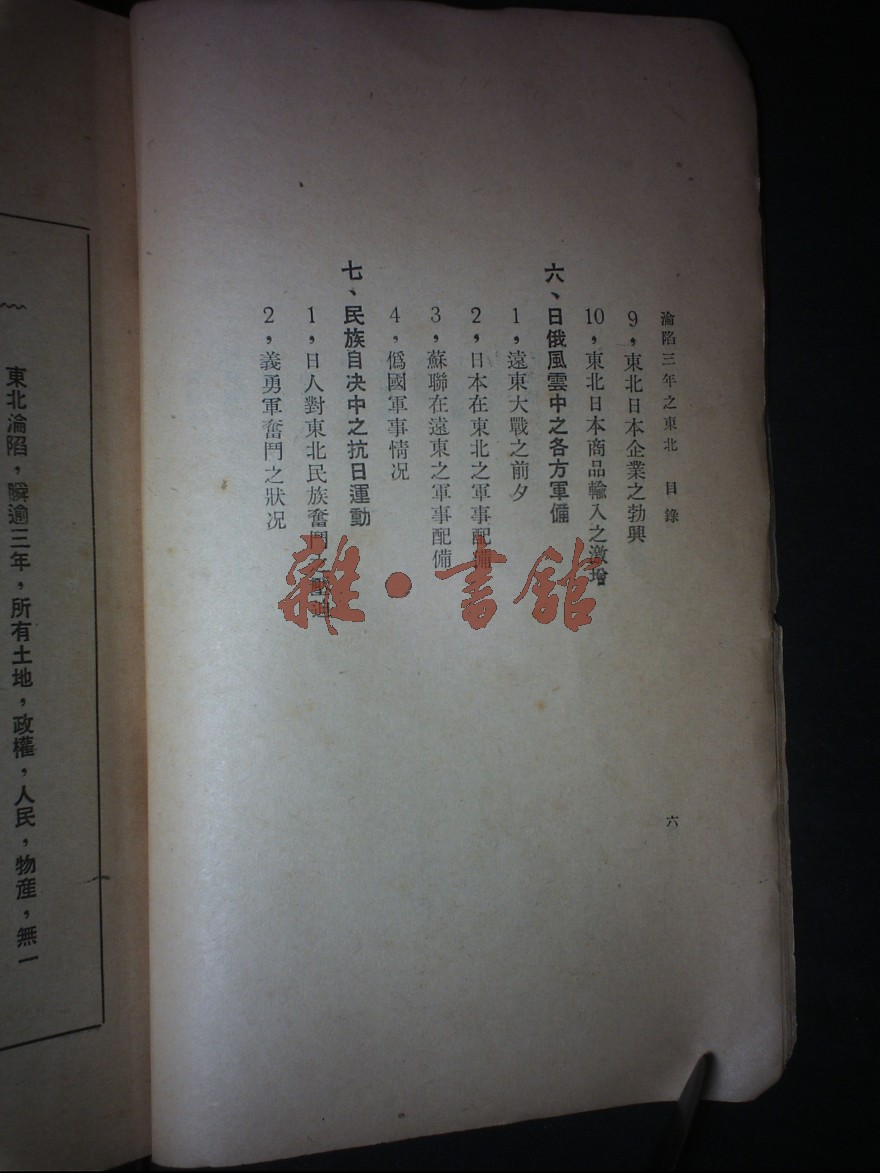 淪陷三年之東北 目錄
六
9，東北日本企業之勃興
10，東北日本商品輸入之激增
六、日俄風雲中之各方軍備
1，遠東大戰之前夕
2，日本在東北之軍事配備
3，蘇聯在遠東之軍事配備
4，僞國軍事情況
七、民族自決中之抗日運動
1，日人對東北民族奮鬥之壓迫
2，義勇軍奮鬥之狀況
東北淪陷，瞬逾三年，所有土地，政權，人民，物產，無一
雜·書館